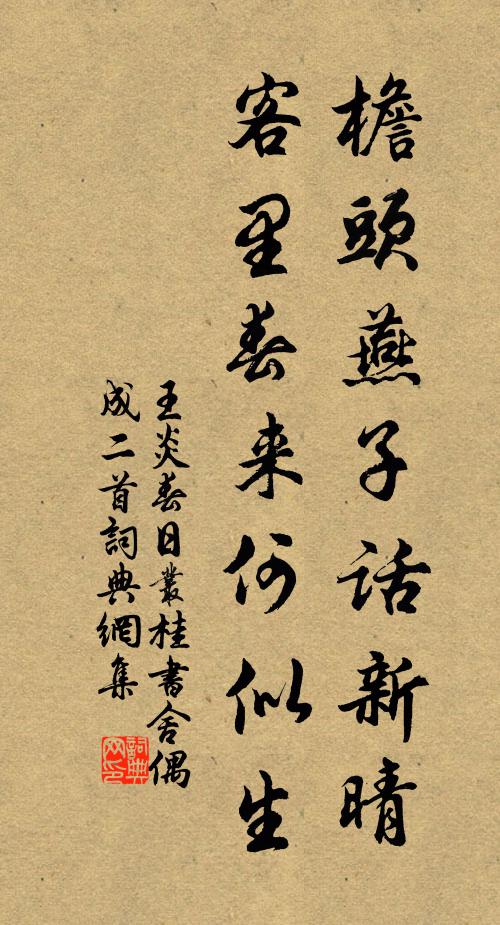 檐頭燕子話新晴
客里春来何似生
王炎春日叢桂書舍偶
成二首詞典網集
詞典
网印